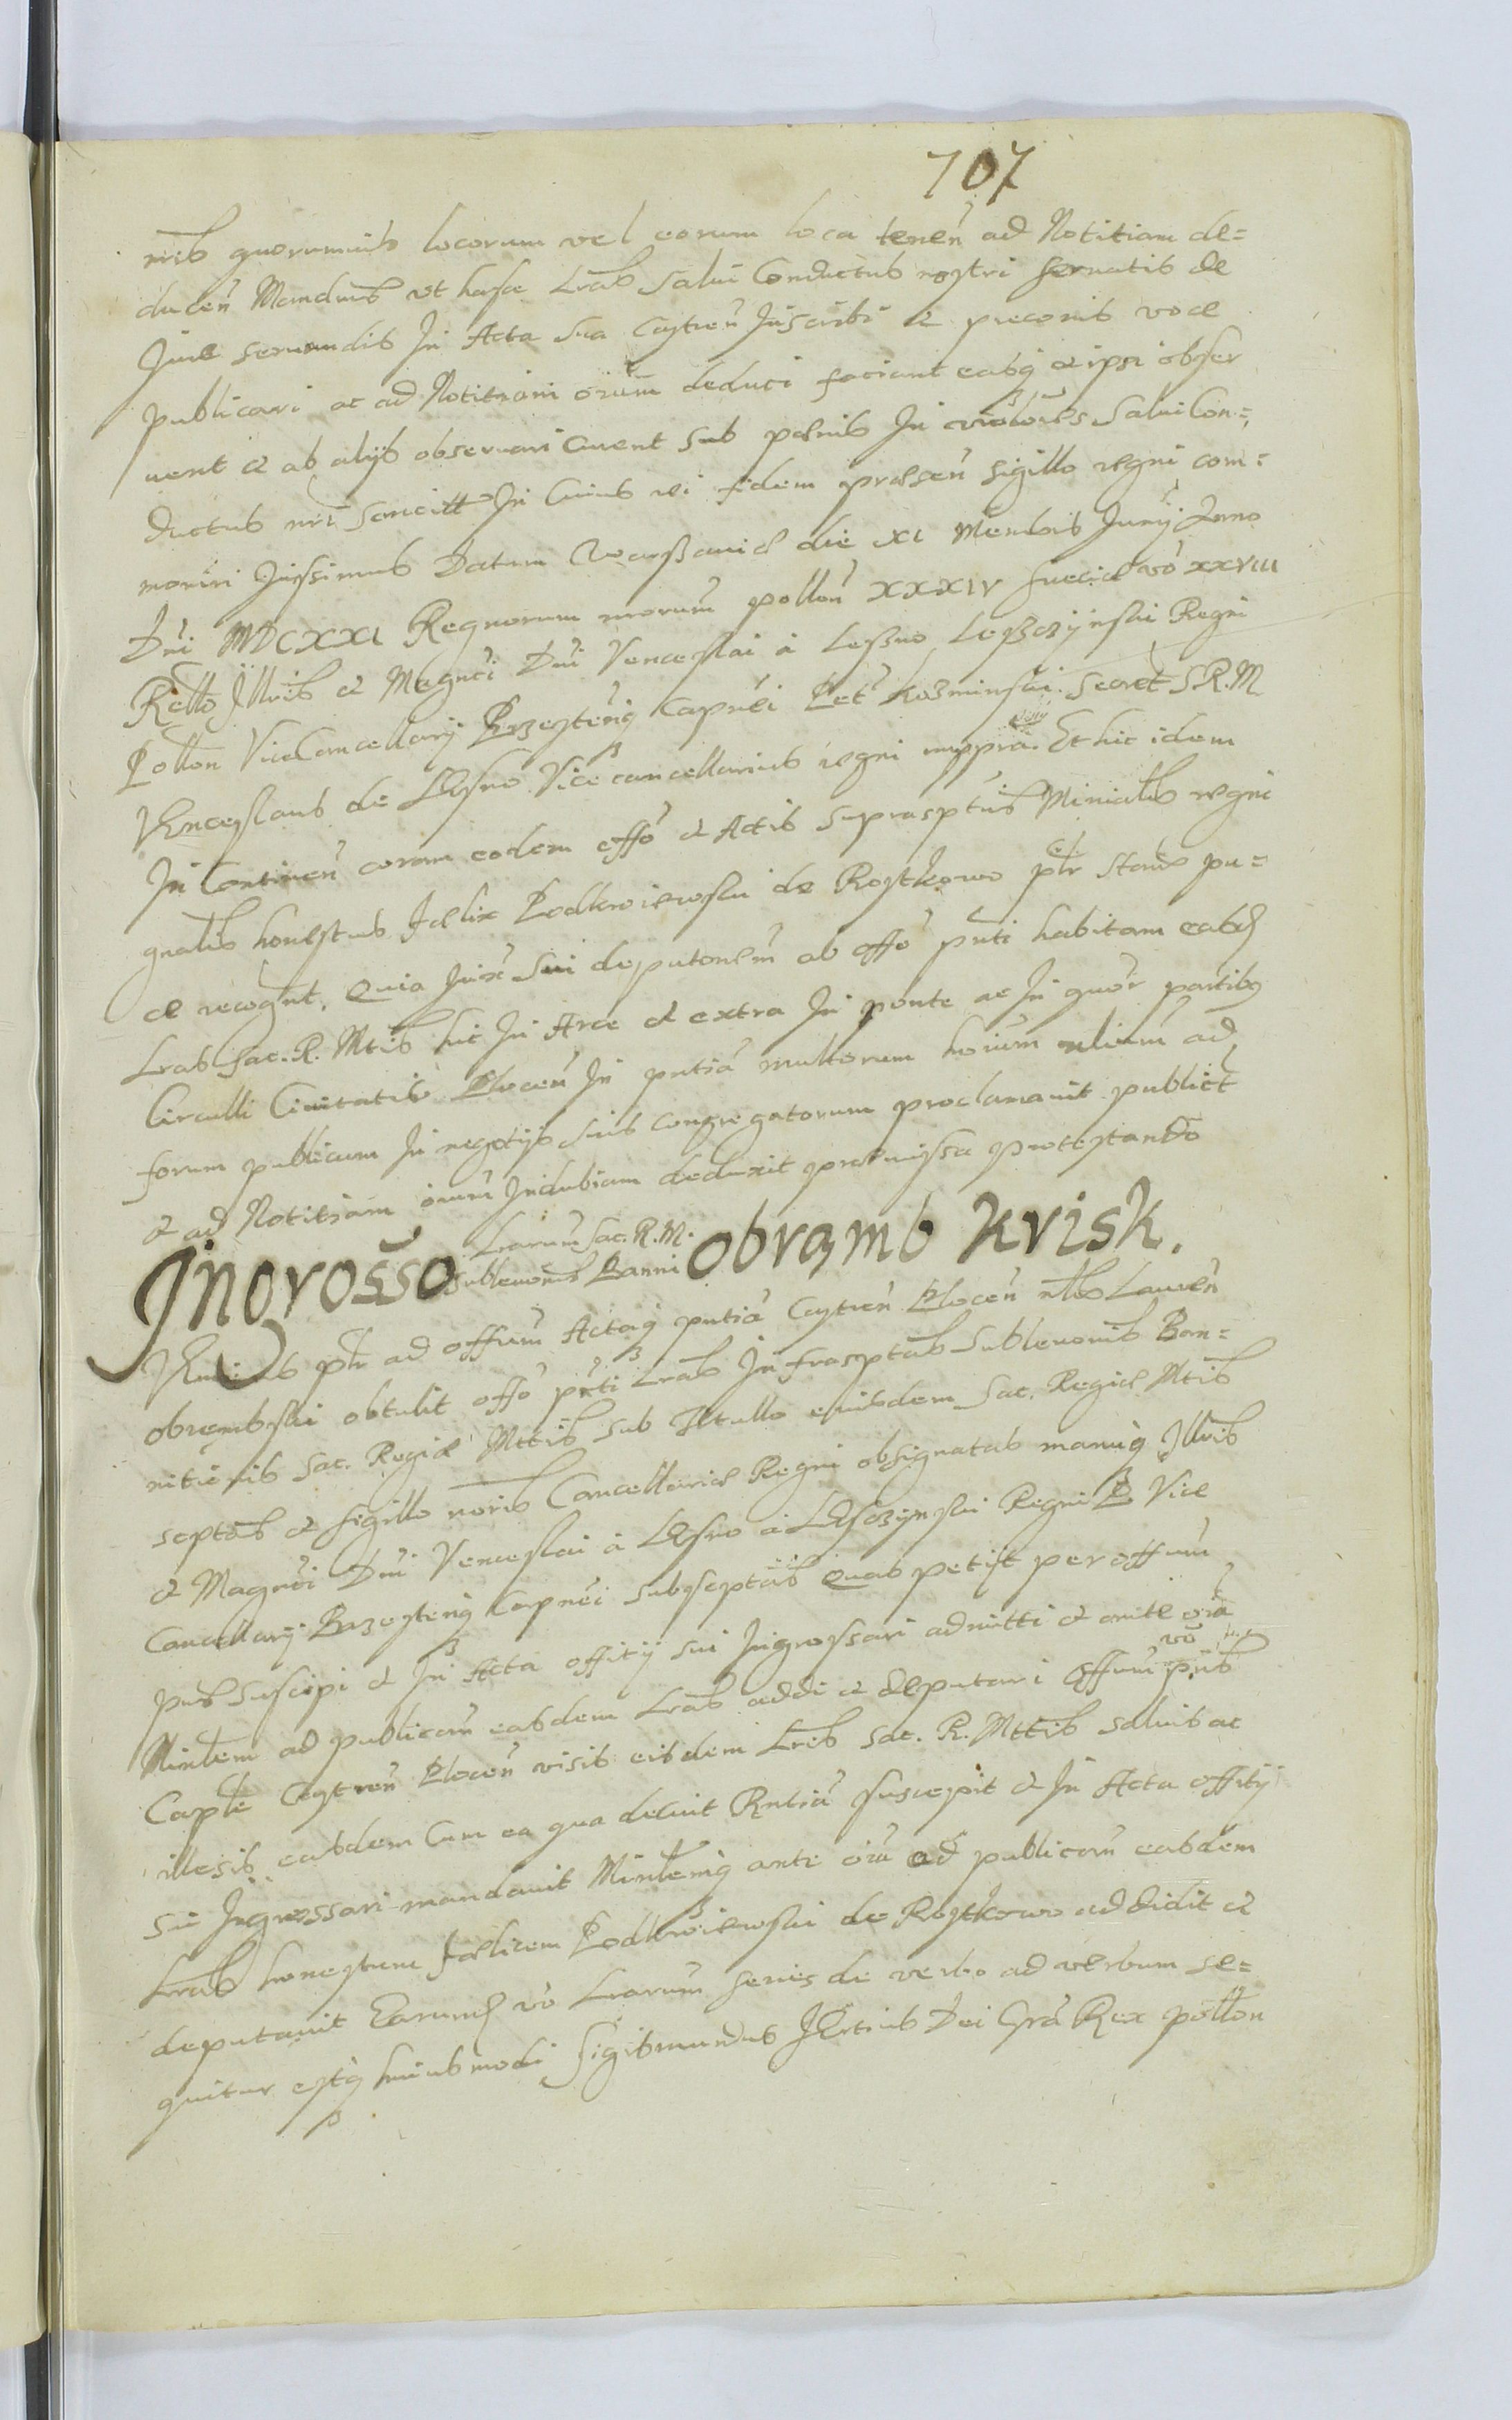 707
nris quorumuis locorum vel eorum loca tenen̄ ad Notitiam de=
ducen̄ Mandmus ut hasce Lras salui Conductus nostri seruatis de
Jure seruandis In Acta sua Castren̄ Inscribi et preconis voce
publicari ac ad Notitiam oīum deduci faciant easq et ipsi obser
uent et ab alijs obseruari curent sub pœnis In violatores Salui Con=
ductus nrī sancitt In Cuius rei fidem præsen̄ sigillo regni com=
muniri Jussimus Datum Warszauiæ die XI Mensis Junij Anno
Dni MDCXXI Regnorum nrorum pollon̄ XXXIV Sueciæ vō XXVIII
Rello Jllris et Magnci Dni Venceslai à Leszno Leszczijnski Regni
Pollon ViceCancellarij Brzesten̄q Capnei Pet Kozminski Secret S.R.M
VEnceslaus de LEsno Vice cancellarius regni mppra. Et hic idem
In Continen̄ coram eodem offō et Actis suprascptus Ministlis regni
gnalis honestus Fælix Podkroiewski de Rostkowo plr stans pu=
ce recognt. Quia Jux Sui deputonem ab offō pnti habitam easd
Lras Sac. R. Mtis hic In Arce et extra In ponte ac In quor partibq
Circulli Ciuitatis Plocen̄ In pntiā multorum hoium alium ad
forum publicum In negotijs suis congregatorum proclamauit publict
et ad Notitiam oium Indubiam deduxit præmissa protestando
Jngrosso Lrarum Sac. R. M. Subleuonis Banni obrąmb krisk.
VEniens plr ad offium Actaq pntiā Castren̄ Plocen̄ nblis Lauren̄
obrembski obtulit offō pnti Lras Infrascptas Subleuonis Ban=
nitionis Sac. Regiæ Mttis sub Titullo eiusdem Sac. Regiæ Mtis
scptas et sigillo noris Cancellariæ Regni obsignatas manuq Jllris
et Magnci Dni Venceslai à LEsno à LEsczijnski Regni P Vice
Cancellarij Brzestenq Capnei subscptas Quas petijt per offium
pns suscipi et In Acta offitij sui Ingrossari admitti et antē oīa
Minlem ad publicam easdem Lras addi et deputari Offium vō pns
Caple Castren̄ Plocen̄ visis eisdem Lris Sac. R. Mttis saluis ac
illesis easdem Cum ea qua decuit Rntiā suscepit et In Acta offitij
sui Ingrossari mandauit Minlemq ante oīa ad publicam easdem
Lras honestum Fælicem Podkroiewski de Rostkowo addidit et
deputauit Earumd vō Lrarum series de verbo ad verbum se=
quitur estq huiusmodi Sigismundus TErtius Dei Grā Rex pollon